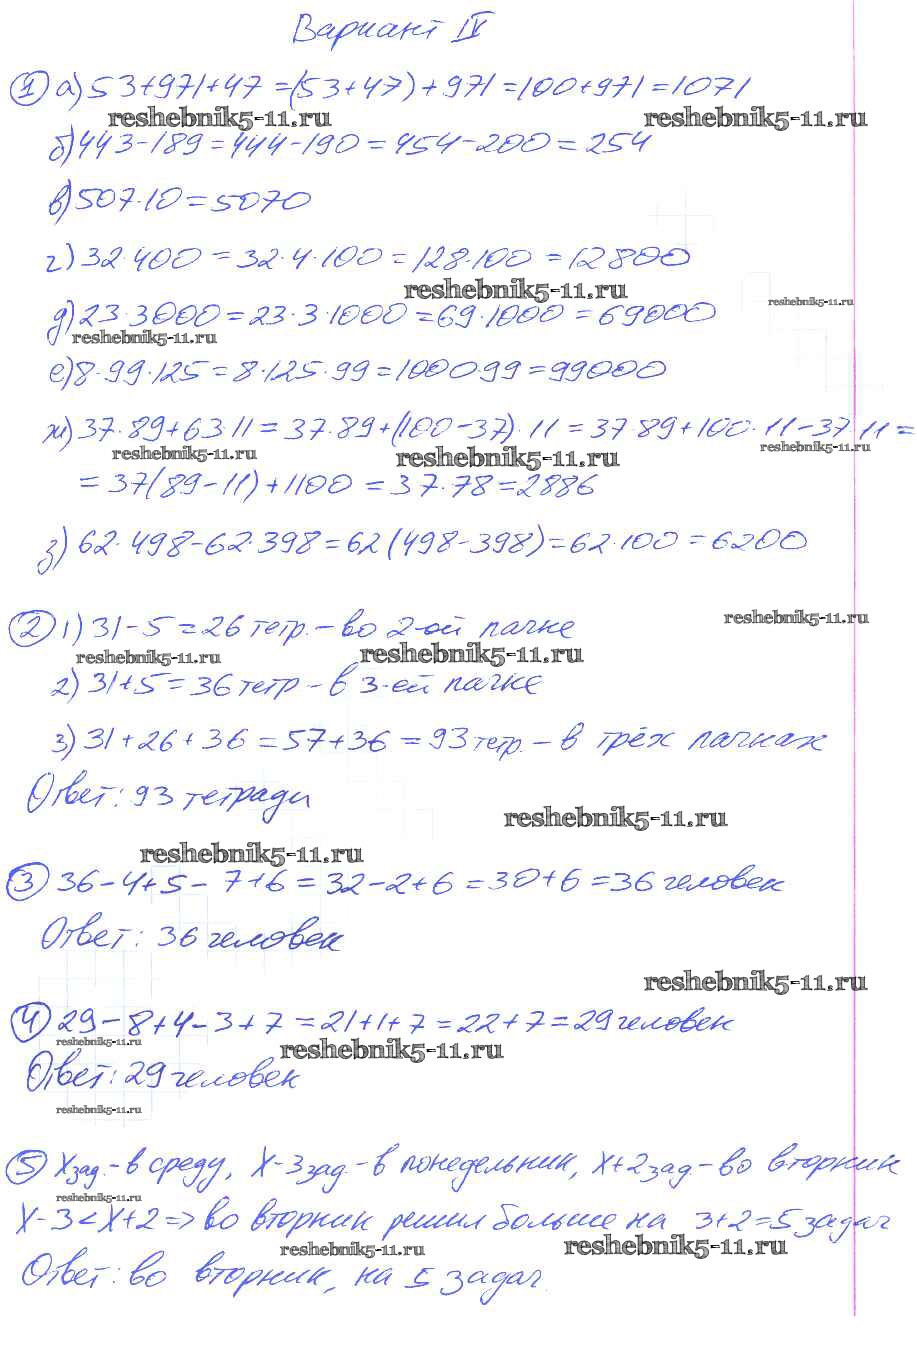 Вариант IV
1 а) 53+971+47=(53+47)+971=100+971=1071
reshebnik5-11.ru reshebnik5-11.ru
б) 443-189=444-190=454-200=254
в) 507·10=5070
г) 32·400=32·4·100=128·100=12800
reshebnik5-11.ru
reshebnik5-11.ru
д) 23·3000=23·3·1000=69·1000=69000
reshebnik5-11.ru
е) 8·99·125=8·125·99=1000·99=99000
ж) 37·89+63·11=37·89+(100-37)·11=37·89+100·11-37·11=
reshebnik5-11.ru reshebnik5-11.ru reshebnik5-11.ru
=37(89-11)+1100=37·78=2886
з) 62·498-62·398=62(498-398)=62·100=6200
reshebnik5-11.ru
2 1) 31-5=26 тетр.-во 2-ой пачке
reshebnik5-11.ru reshebnik5-11.ru
2) 31+5=36 тетр-в 3-ей пачке
3) 31+26+36=57+36=93 тетр.-в трёх пачках
Ответ: 93 тетради
reshebnik5-11.ru
reshebnik5-11.ru
3 36-4+5-7+6=32-2+6=30+6=36 человек
Ответ: 36 человек
reshebnik5-11.ru
4 29-8+4-3+7=21+1+7=22+7=29 человек
reshebnik5-11.ru reshebnik5-11.ru
Ответ: 29 человек
reshebnik5-11.ru
5 x зад.-в среду, x-3 зад.-в понедельник, x+2 зад-во вторник
reshebnik5-11.ru
x-3<x+2=> во вторник решил больше на 3+2=5 задач
reshebnik5-11.ru reshebnik5-11.ru
Ответ: во вторник, на 5 задач.